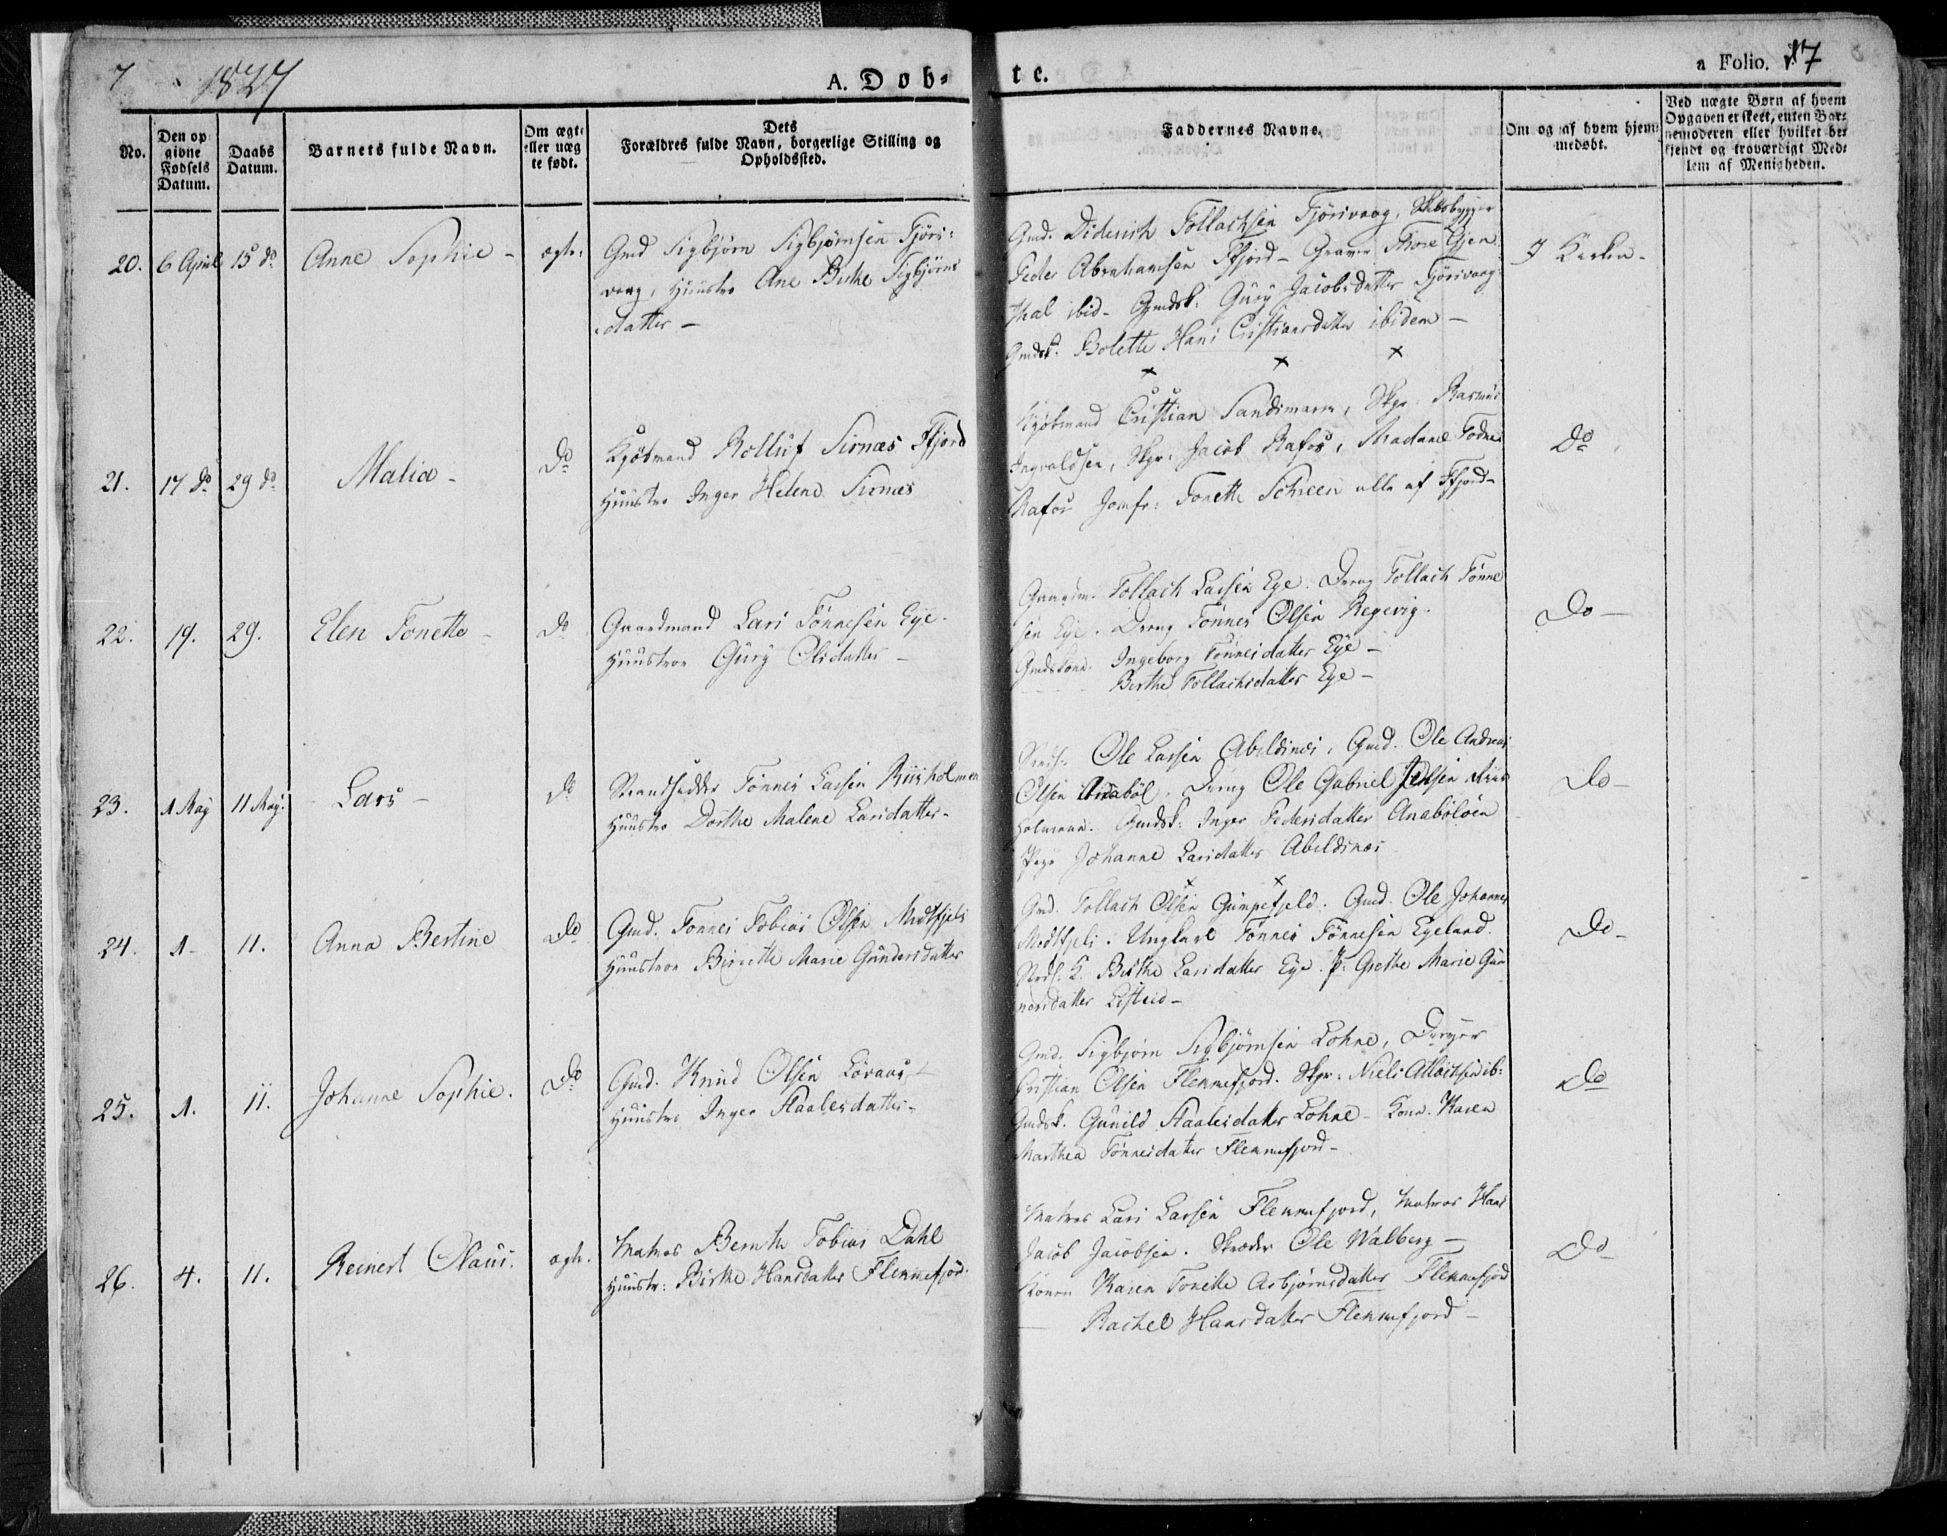 7 1827
A. Døb-
te.
a Folio. 17
No.
Den op
givne
Fødsels
Datum.
Daabs
Datum.
Barnets fulde Navn.
Om ægte
eller uæg
te født.
Dets
Forældres fulde Navn, borgerlige Stilling og
Opholdssted.
Faddernes Navne.
Om og af hvem hjem
medøbt.
Ved uægte Børn af hvem
Opgaven er skeet, enten Bar-
nemoderen eller hvilket be-
kjendt og troværdigt Med-
lem af Menigheden.
20. 6 April 15 do Anne Sophie - ægte.
Gmd Sigbjørn Sigbjørnsen Fjøri-
vaag, Huustro Ane Birthe Sigbjørns
datter -
Gmd. Diderich Tollachsen Fjørivaag,
Peder Abrahamsen Ffjord - Graver Thore Gjen
thal ibid - Gmdsk: Gury Jacobsdatter Fjørivaag
Gmdsk. Bolette Hans Cristiansdatter ibidem -
I Kirken -
21. 17 do 29 do Malia - Do
Kjøbmand Rolluf Sirnæs Ffjord
Huustro Inger Helene Sirnæs
Kjøbmand Cristian Sandsmann, Skpr. Rasmus
Ingvaldsen, Skpr. Jacob Rafos, Madame
Rafos Jomfr: Tonette Schreen alle af Ffjord -
Do
22. 19. 29. Elen Tonette - Do
Gaardmand Lars Tønnesen Eye.
Huustroe Gury Olsdatter -
Gaardm. Tollach Larsen Eye. Dreng Tollach Tønne
sen Eye. Dreng Tønnes Olsen Regevig.
Gmdskone. Ingeborg Tønnesdatter Eye -
Birthe Tollachsdatter Eye -
Do -
23. 1 May 11 May. - Lars - Do
Strandsidder Tønnes Larsen Riisholmen
Huustro Dorthe Malene Larsdatter -
Ole Larsen Abeldsnes, Gmd. Ole Andreas
Olsen Anabøl. Dreng Ole Gabriel Olsen Riis
holmene. Gmdsk: Inger Pedersdatter Anabøløen
Pige Johanne Larsdatter Abeldsnes
Do -
24. 1 - 11. Anna Bertine Do
Gmd. Tønnes Tobias Olsen Midtfjeli
Huustroe Birette Marie Gundersdatter
Gmd. Tollach Olsen Gumpefjeld. Gmd. Ole Johannes
Midtfjeli. Ungkarl Tønnes Tønnesen Egeland.
Birthe Larsdatter Eye. P: Grethe Marie Gun
nersdatter Listeid -
Do -
25. 1. 11. Johanne Sophie. Do
Gmd. Knud Olsen Løvaas
Huustro Inger Staalesdatter -
Gmd. Sigbjørn Sigbjørnsen Lohne,
Cristian Olsen Flekkefjord. Skpr: Niels ib:
Gmdsk. Gunild Staalesdatter Lohne - Kone. Karen
Marthea Tønnesdatter Flekkefjord -
Do
26. 4. 11. Reinert Olaus. ægte.
Matros Bernth Tobias Dahl
Huustr: Birthe Hansdatter Flekkefjord.
Matros Lars Larsen Flekkefjord, Matros Hans
Jacob Jacobsen. Skræder Ole Walberg -
Konen Karen Tonette Asbjørnsdatter Flekkefjord
Rachel Hansdatter Flekkefjord -
Do